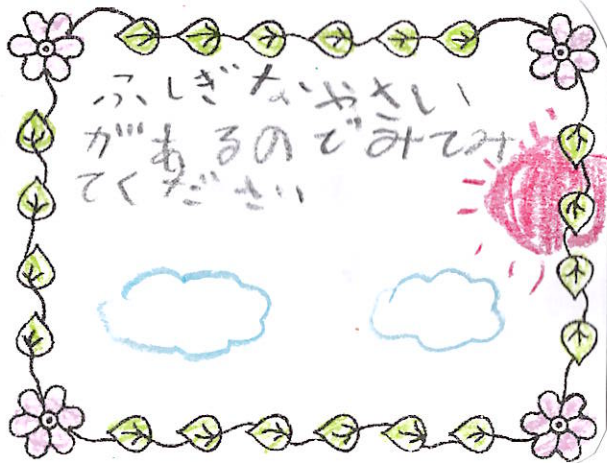 ふしぎなやさい
があるのでみてみ
てください